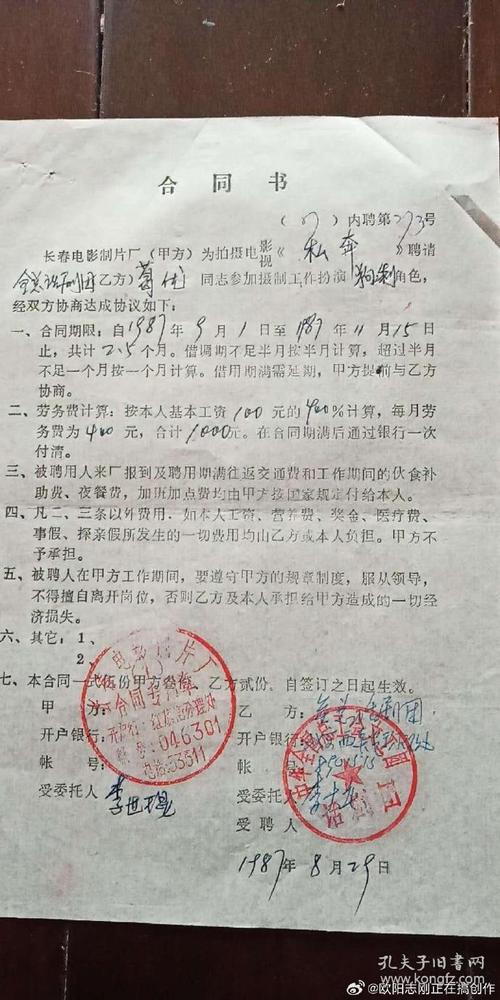 合同书
（87）内聘第273号
长春电影制片厂（甲方）为拍摄电影视《私奔》聘请
全总话剧团（乙方）葛优同志参加摄制工作扮演狗剩角色，
经双方协商达成协议如下：
一、合同期限：自1987年9月1日至1987年11月15日
止，共计2.5个月。借调期不足半月按半月计算，超过半月
不足一个月按一个月计算。借用期满需延期，甲方提前与乙方
协商。
二、劳务费计算：按本人基本工资100元的400%计算，每月劳
务费为400元，合计1000元。在合同期满后通过银行一次
付清。
三、被聘用人来厂报到及聘用期满往返交通费和工作期间的伙食补
助费、夜餐费，加班加点费均由甲方按国家规定付给本人。
四、凡二、三条以外费用．如本人工资、营养费、奖金、医疗费、
事假、探亲假所发生的一切费用均由乙方或本人负担。甲方不
予承担。
五、被聘人在甲方工作期间，要遵守甲方的规章制度，服从领导，
不得擅自离开岗位，否则乙方及本人承担给甲方造成的一切经
济损失。
六、其它：1、
2、
七、本合同一式伍份甲方叁份，乙方贰份，自签订之日起生效。
甲方：
乙方：全总话剧团
开户银行：
开户银行：
帐号：
帐号：
电影制片厂
合同专用章
046301
电话53311
话剧团
受委托人
受委托人
受聘人
1987年8月29日
孔夫子旧书网
@欧阳志刚正在搞创作